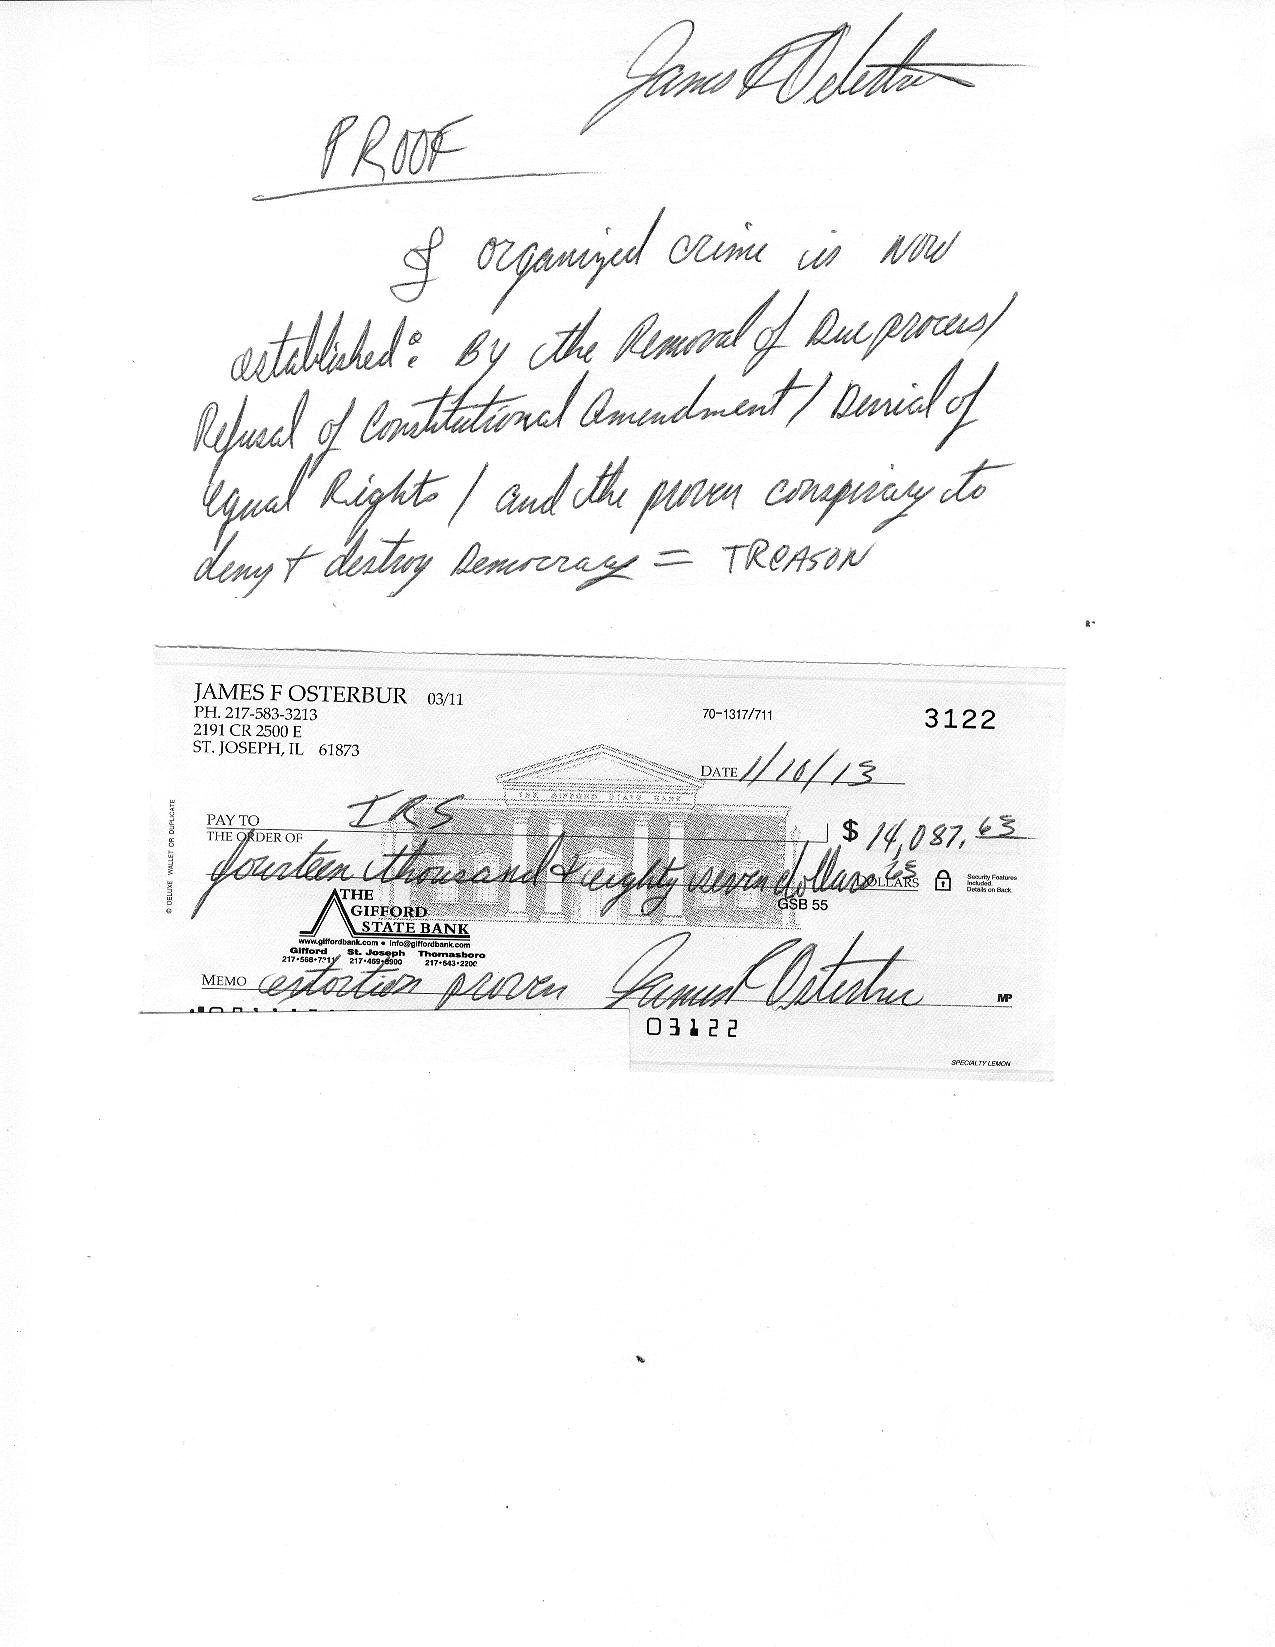 James F Osterbur
PROOF
of organized crime is now
established: By the Removal of Due process/
Refusal of Constitutional Amendment/ Denial of
equal Rights / and the proven conspiracy to
deny + destroy Democracy = TREASON
JAMES F OSTERBUR 03/11
PH. 217-583-3213
2191 CR 2500 E
ST. JOSEPH, IL 61873
70-1317/711
3122
DATE 1/10/13
THE GIFFORD STATE BANK
PAY TO
THE ORDER OF IRS $ 14,087.63
fourteen thousand & eighty seven dollars 63 DOLLARS
Security Features
Included.
Details on Back.
GSB 55
THE
GIFFORD
STATE BANK
www.giffordbank.com • info@giffordbank.com
Gifford St. Joseph Thomasboro
217•568•7311 217•469•8900 217•643•2200
MEMO extortion proven James F Osterbur MP
03122
SPECIALTY LEMON
© DELUXE WALLET OR DUPLICATE